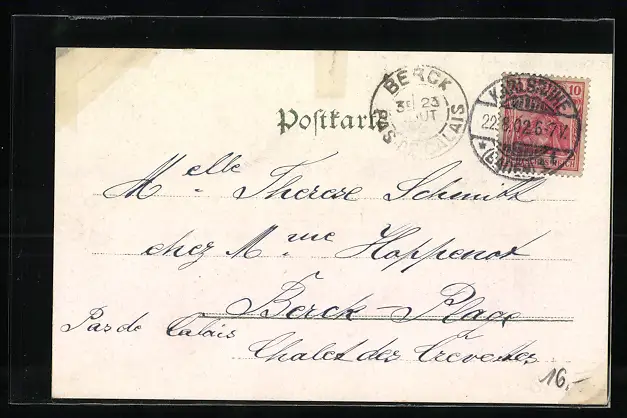 BERCK
3E 23
AOUT
PAS-DE-CALAIS
KARLSRUHE
22.8.02.6-7V.
* (BADEN)
10
REICH
Postkarte
Melle Therese Schmith
chez Mme Hoppenot
Berck-Plage
Pas de Calais
Chalet des Crevettes
16,-